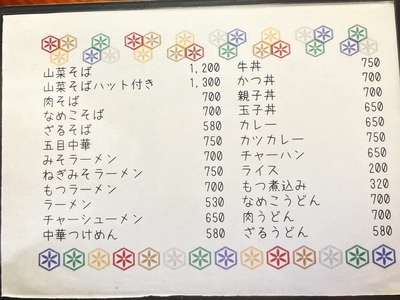 山菜そば 1,200
山菜そばハット付き 1,300
肉そば 700
なめこそば 700
ざるそば 580
五目中華 750
みそラーメン 700
ねぎみそラーメン 750
もつラーメン 700
ラーメン 530
チャーシューメン 650
中華つけめん 580
牛丼 750
かつ丼 700
親子丼 700
玉子丼 650
カレー 650
カツカレー 750
チャーハン 650
ライス 200
もつ煮込み 320
なめこうどん 700
肉うどん 700
ざるうどん 580